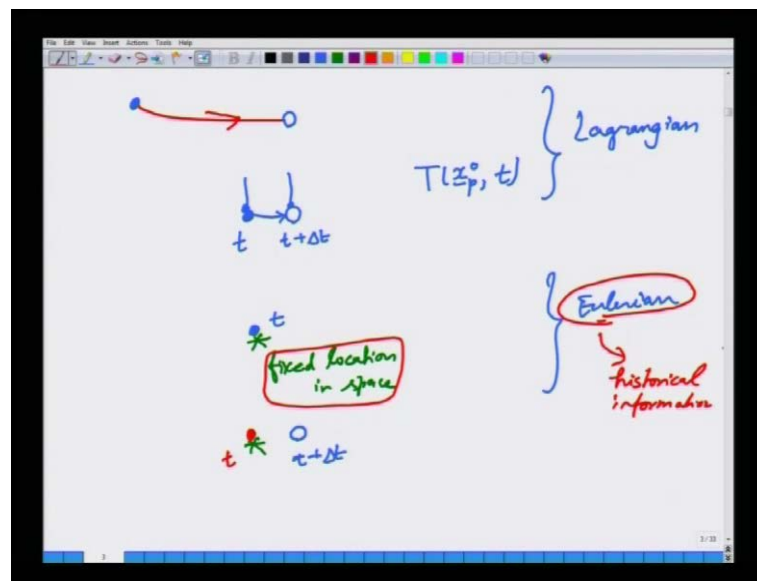 File Edit View Insert Actions Tools Help
B I
Lagrangian
T(x°p, t)
t t+Δt
t
Eulerian
fixed location
in space
historical
information
t t+Δt
3/33
3